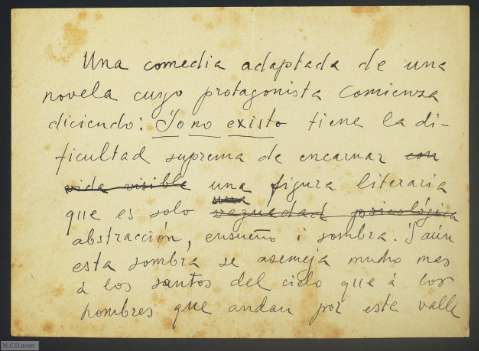 Una comedia adaptada de una
novela cuyo protagonista comienza
diciendo: Yo no existo tiene la di-
ficultad suprema de encarnar con
vida visible una figura literaria
una
que es solo vaguedad psicológica
abstracción, ensueño i sombra. I aún
esta sombra se asemeja mucho mas
á los santos del cielo que á los
hombres que andan por este valle